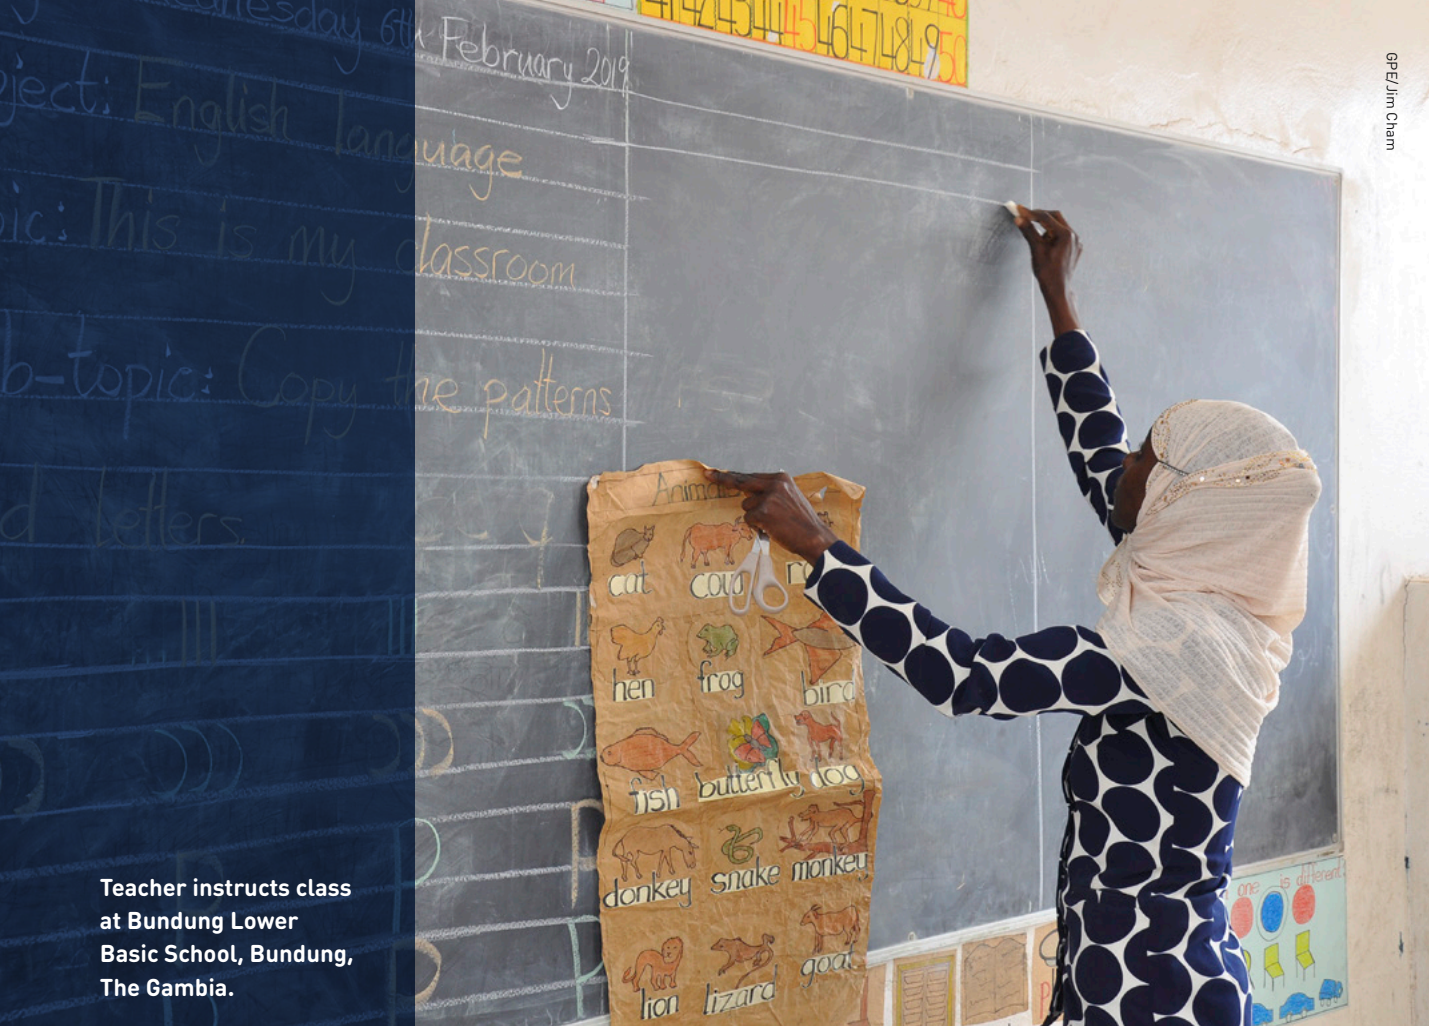 41 42 43 44 45 46 47 48 49 50
GPE/Jim Cham
Wednesday 6th February 2019
ject: English language
ic: This is my classroom
b-topic: Copy the patterns
d letters.
Animals
cat cow
hen frog bird
fish butterfly dog
donkey snake monkey
lion lizard goat
one is different
Teacher instructs class
at Bundung Lower
Basic School, Bundung,
The Gambia.